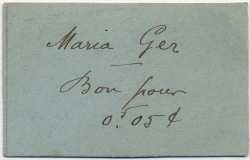 Maria Ger
Bon pour
0f05¢